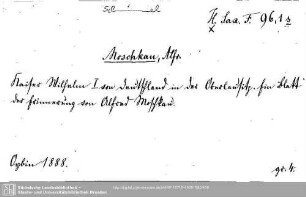 H. Sax. F. 96,1 z
Moschkau, Alfr.
Kaiser Wilhelm I von Deutschland in der Oberlausitz. Ein Blatt
der Erinnerung von Alfred Moschkau.
Oybin 1888.
gr. 4.
Sächsische Landesbibliothek -
Staats- und Universitätsbibliothek Dresden